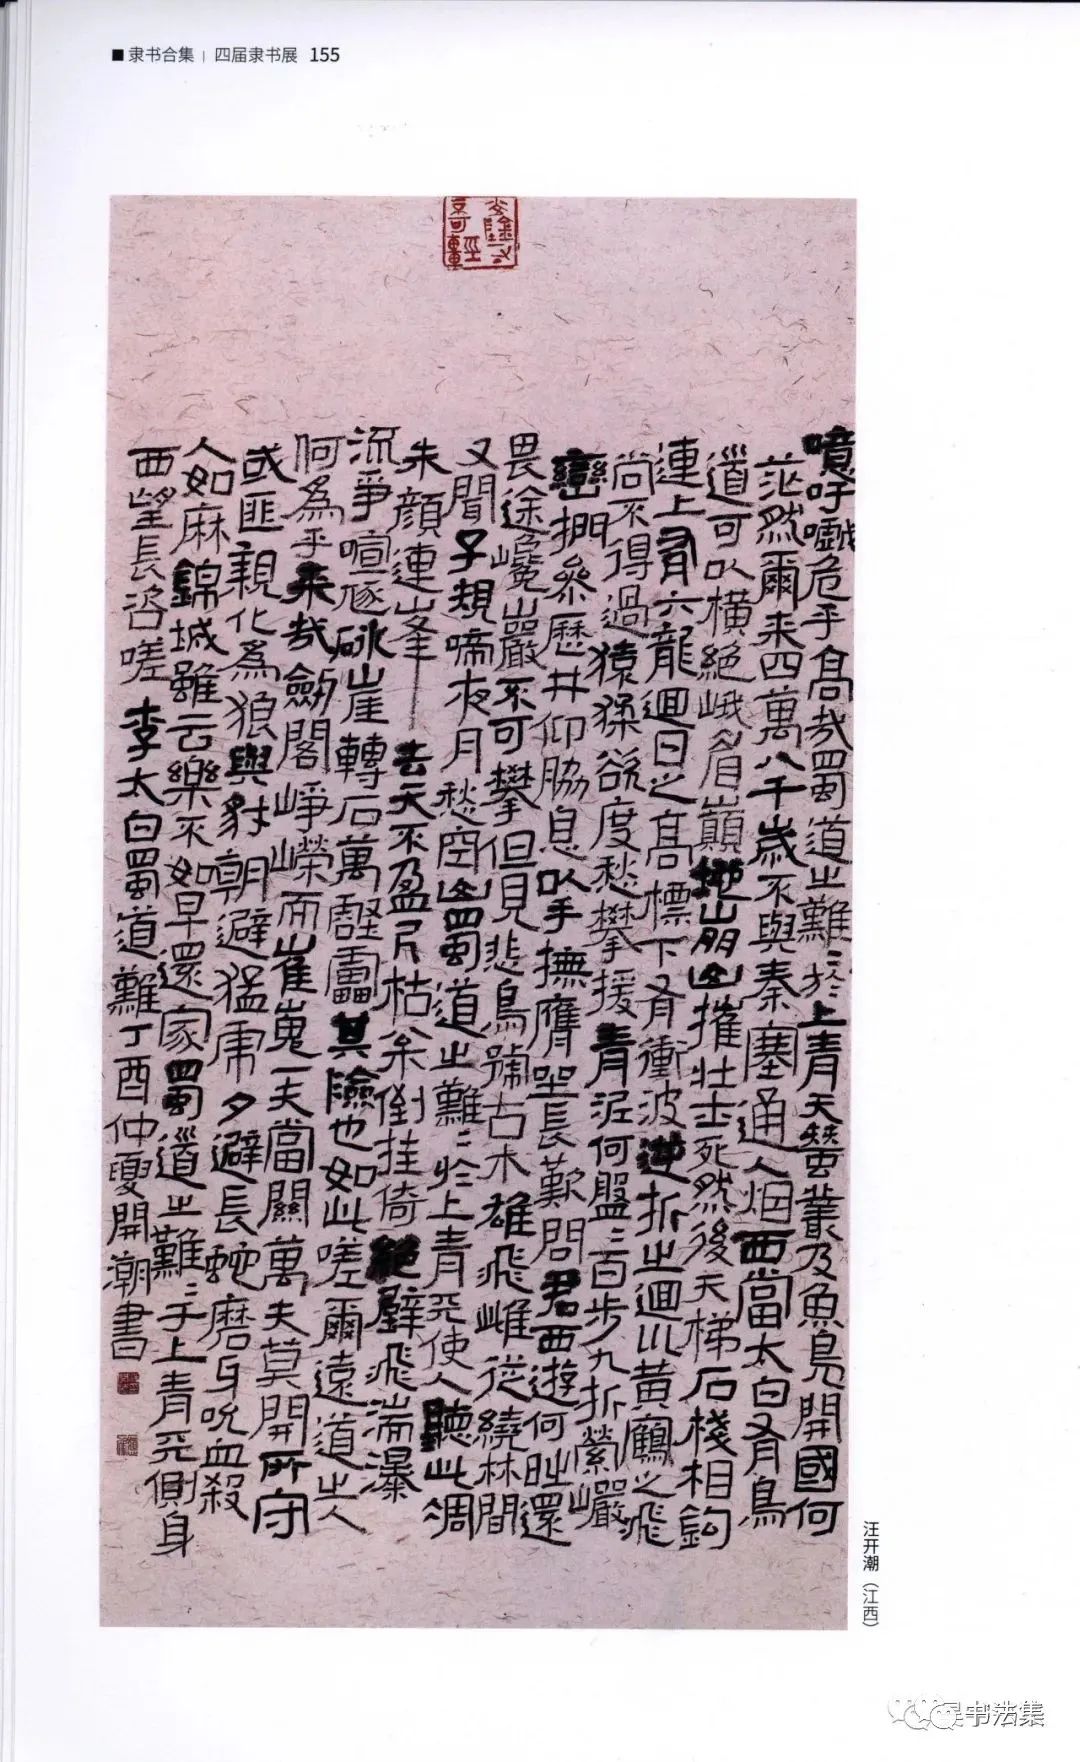 ■ 隶书合集 | 四届隶书展 155
噫吁嚱危乎高哉蜀道之難﹕於上青天蠶叢及魚鳧開國何
茫然爾来四萬八千歲不與秦塞通人烟西當太白有鳥
道可以横絕峨眉巔地崩山摧壯士死然後天梯石棧相鈎
連上有六龍迴日之高標下有衝波逆折之迴川黃鶴之飛
尚不得過猿猱欲度愁攀援青泥何盤﹕百步九折縈巖
巒捫參歷井仰脇息以手撫膺坐長歎問君西遊何時還
畏途巉巖不可攀但見悲鳥號古木雄飛雌從繞林間
又聞子規啼夜月愁空山蜀道之難﹕於上青天使人聽此凋
朱顏連峯去天不盈尺枯松倒挂倚絕壁飛湍瀑
流爭喧豗砯崖轉石萬壑靁其險也如此嗟爾遠道之人
何為乎来哉劒閣崢嶸而崔嵬一夫當關萬夫莫開所守
或匪親化為狼與豺朝避猛虎夕避長蛇磨牙吮血殺
人如麻錦城雖云樂不如早還家蜀道之難﹕于上青天側身
西望長咨嗟 李太白蜀道難丁酉仲夏開潮書
汪开潮（江西）
星书法集